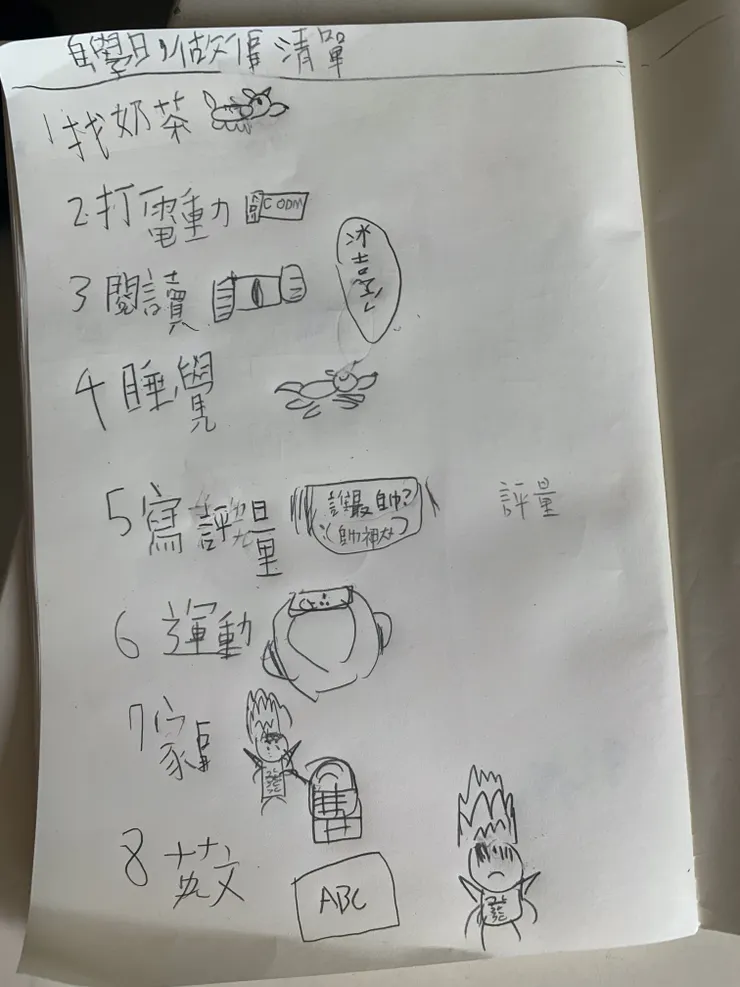 自學日 做作事清單
1 找奶茶
2. 打電動 CODM
3 閱讀
冰吉
4 睡覺
5 寫評量 誰最帥? (帥神大) 評量
6 運動
7 家
8 英文 ABC